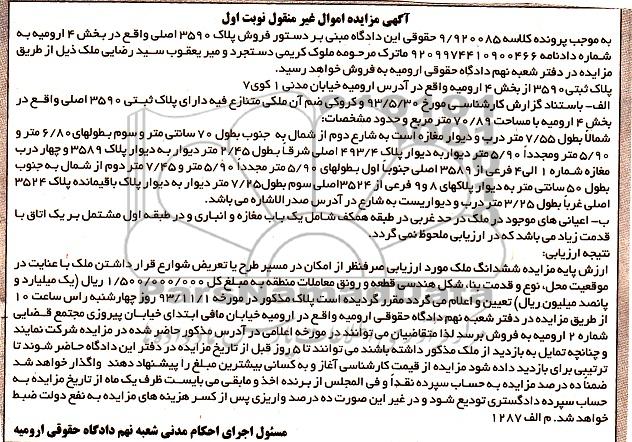 آگهی مزایده اموال غیر منقول نوبت اول
به موجب پرونده کلاسه ۹/۹۲۰۰۸۵ حقوقی این دادگاه مبنی بر دستور فروش پلاک ۳۵۹۰ اصلی واقع در بخش ۴ ارومیه به
شماره دادنامه ۹۲۰۹۹۷۴۴۱۰۹۰۰۴۶۶ ماترک مرحومه ملوک کریمی دستجرد و میر یعقوب سید رضایی ملک ذیل از طریق
مزایده در دفتر شعبه نهم دادگاه حقوقی ارومیه به فروش خواهد رسید.
پلاک ثبتی ۳۵۹۰ از بخش ۴ ارومیه واقع در آدرس ارومیه خیابان مدنی ۱ کوی ۷
الف- باستناد گزارش کارشناسی مورخ ۹۳/۵/۳۰ و کروکی ضم آن ملکی متنازع فیه دارای پلاک ثبتی ۳۵۹۰ اصلی واقع در
بخش ۴ ارومیه با مساحت ۷۰/۸۹ متر مربع و حدود مشخصات:
شمالاً بطول ۷/۵۵ متر درب و دیوار مغازه است به شارع دوم از شمال به جنوب بطول ۷۰ سانتی متر و سوم بطولهای ۶/۸۰ متر و
۵/۹۰ متر ومجدداً ۵/۹۰ متر دیوار به دیوار پلاک ۴۹۳/۴ اصلی شرقاً بطول ۲/۴۵ متر دیوار به دیوار پلاک ۳۵۸۹ و چهار درب
مغازه شماره ۱ الی ۴ فرعی از ۳۵۸۹ اصلی جنوباً اول بطولهای ۵/۹۰ متر مجدداً ۵/۹۰ متر و ۷/۴۵ متر دوم از شمال به جنوب
بطول ۵۰ سانتی متر به دیوار پلاکهای ۸ و ۹ فرعی از ۳۵۲۴ اصلی سوم بطول ۷/۲۵ متر دیوار به دیوار پلاک باقیمانده پلاک ۳۵۲۴
اصلی غرباً بطول ۳/۲۵ متر درب و دیواریست به شارع در آدرس صدر الاشاره می باشد.
ب- اعیانی های موجود در ملک در حد غربی در طبقه همکف شامل یک باب مغازه و انباری و در طبقه اول مشتمل بر یک اتاق با
قدمت زیاد می باشد که در ارزیابی ملحوظ نمی گردد.
نتیجه ارزیابی:
ارزش پایه مزایده ششدانگ ملک مورد ارزیابی صرفنظر از امکان در مسیر طرح یا تعریض شوارع قرار داشتن ملک با عنایت در
موقعیت محل، نوع و قدمت بنا، شکل هندسی قطعه و رونق معاملات منطقه به مبلغ کل ۱/۵۰۰/۰۰۰/۰۰۰ ریال (یک میلیارد و
پانصد میلیون ریال) تعیین و اعلام می گردد مقرر گردیده است پلاک مذکور در مورخه ۹۳/۱۱/۱ روز چهارشنبه راس ساعت ۱۰
از طریق مزایده در دفتر شعبه نهم دادگاه حقوقی ارومیه واقع در ارومیه خیابان مافی ابتدای خیابان پیروزی مجتمع قضایی
شماره ۲ ارومیه به فروش برسد لذا متقاضیان می توانند در مورخه اعلامی در آدرس مذکور حاضر شده در مزایده شرکت نمایند
و چنانچه تمایل به بازدید از ملک مذکور داشته باشند می توانند تا ۵ روز قبل از تاریخ مزایده در دفتر این دادگاه حاضر شوند تا
ترتیبی برای بازدید داده شود مزایده از قیمت کارشناسی آغاز و به کسانی بیشترین مبلغ را پیشنهاد دهند واگذار خواهد شد
ضمناً ده درصد مزایده به حساب سپرده نقداً و فی المجلس از برنده اخذ و مابقی می بایست ظرف یک ماه از تاریخ مزایده به
حساب سپرده دادگستری تودیع شود و در غیر این صورت ده درصد واریزی پس از کسر هزینه های مزایده به نفع دولت ضبط
خواهد شد. م الف ۱۲۸۷
مسئول اجرای احکام مدنی شعبه نهم دادگاه حقوقی ارومیه